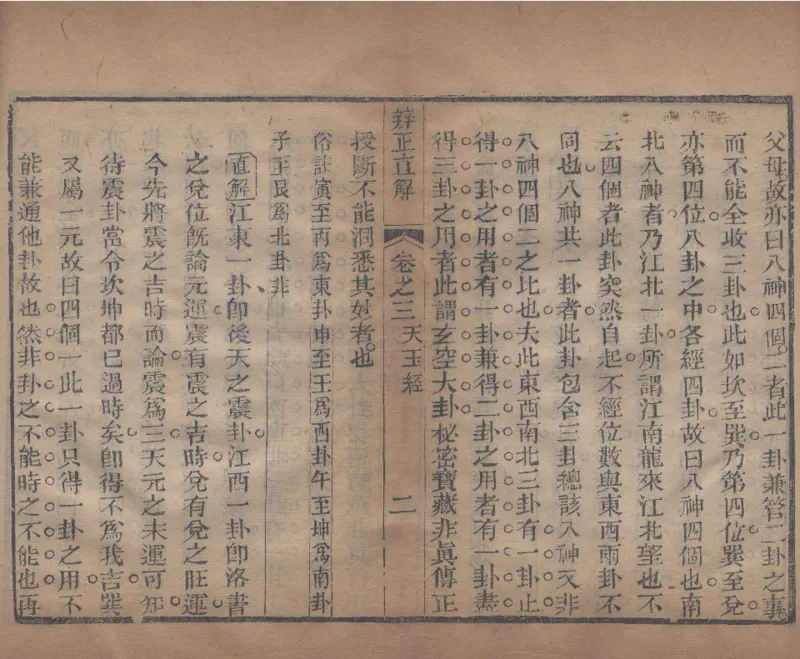 父母故亦曰八神四個二者此一卦兼管二卦之事
而不能全收三卦也此如坎至巽乃第四位巽至兌
亦第四位八卦之中各經四卦故曰八神四個也南
北八神者乃江北一卦所謂江南龍來江北望也不
云四個者此卦突然自起不經位數與東西兩卦不
同也八神共一卦者此卦包含三卦總該八神又非
八神四個二之比也夫此東西南北三卦有一卦止
得一卦之用者有一卦兼得二卦之用者有一卦盡
得三卦之用者此謂玄空大卦秘密寶藏非眞傳正
辨正直解 卷之三 天玉經 二
授斷不能洞悉其妙者也
俗註寅至丙爲東卦申至壬爲西卦午至坤爲南卦
子至艮爲北卦非
直解江東一卦卽後天之震卦江西一卦卽洛書
之兌位旣論元運震有震之吉時兌有兌之旺運
今先將震之吉時而論震爲三天元之未運可知
待震卦當令坎坤都已過時矣卽得不爲我吉巽
又屬一元故曰四個一此一卦只得一卦之用不
能兼通他卦故也然非卦之不能時之不能也再